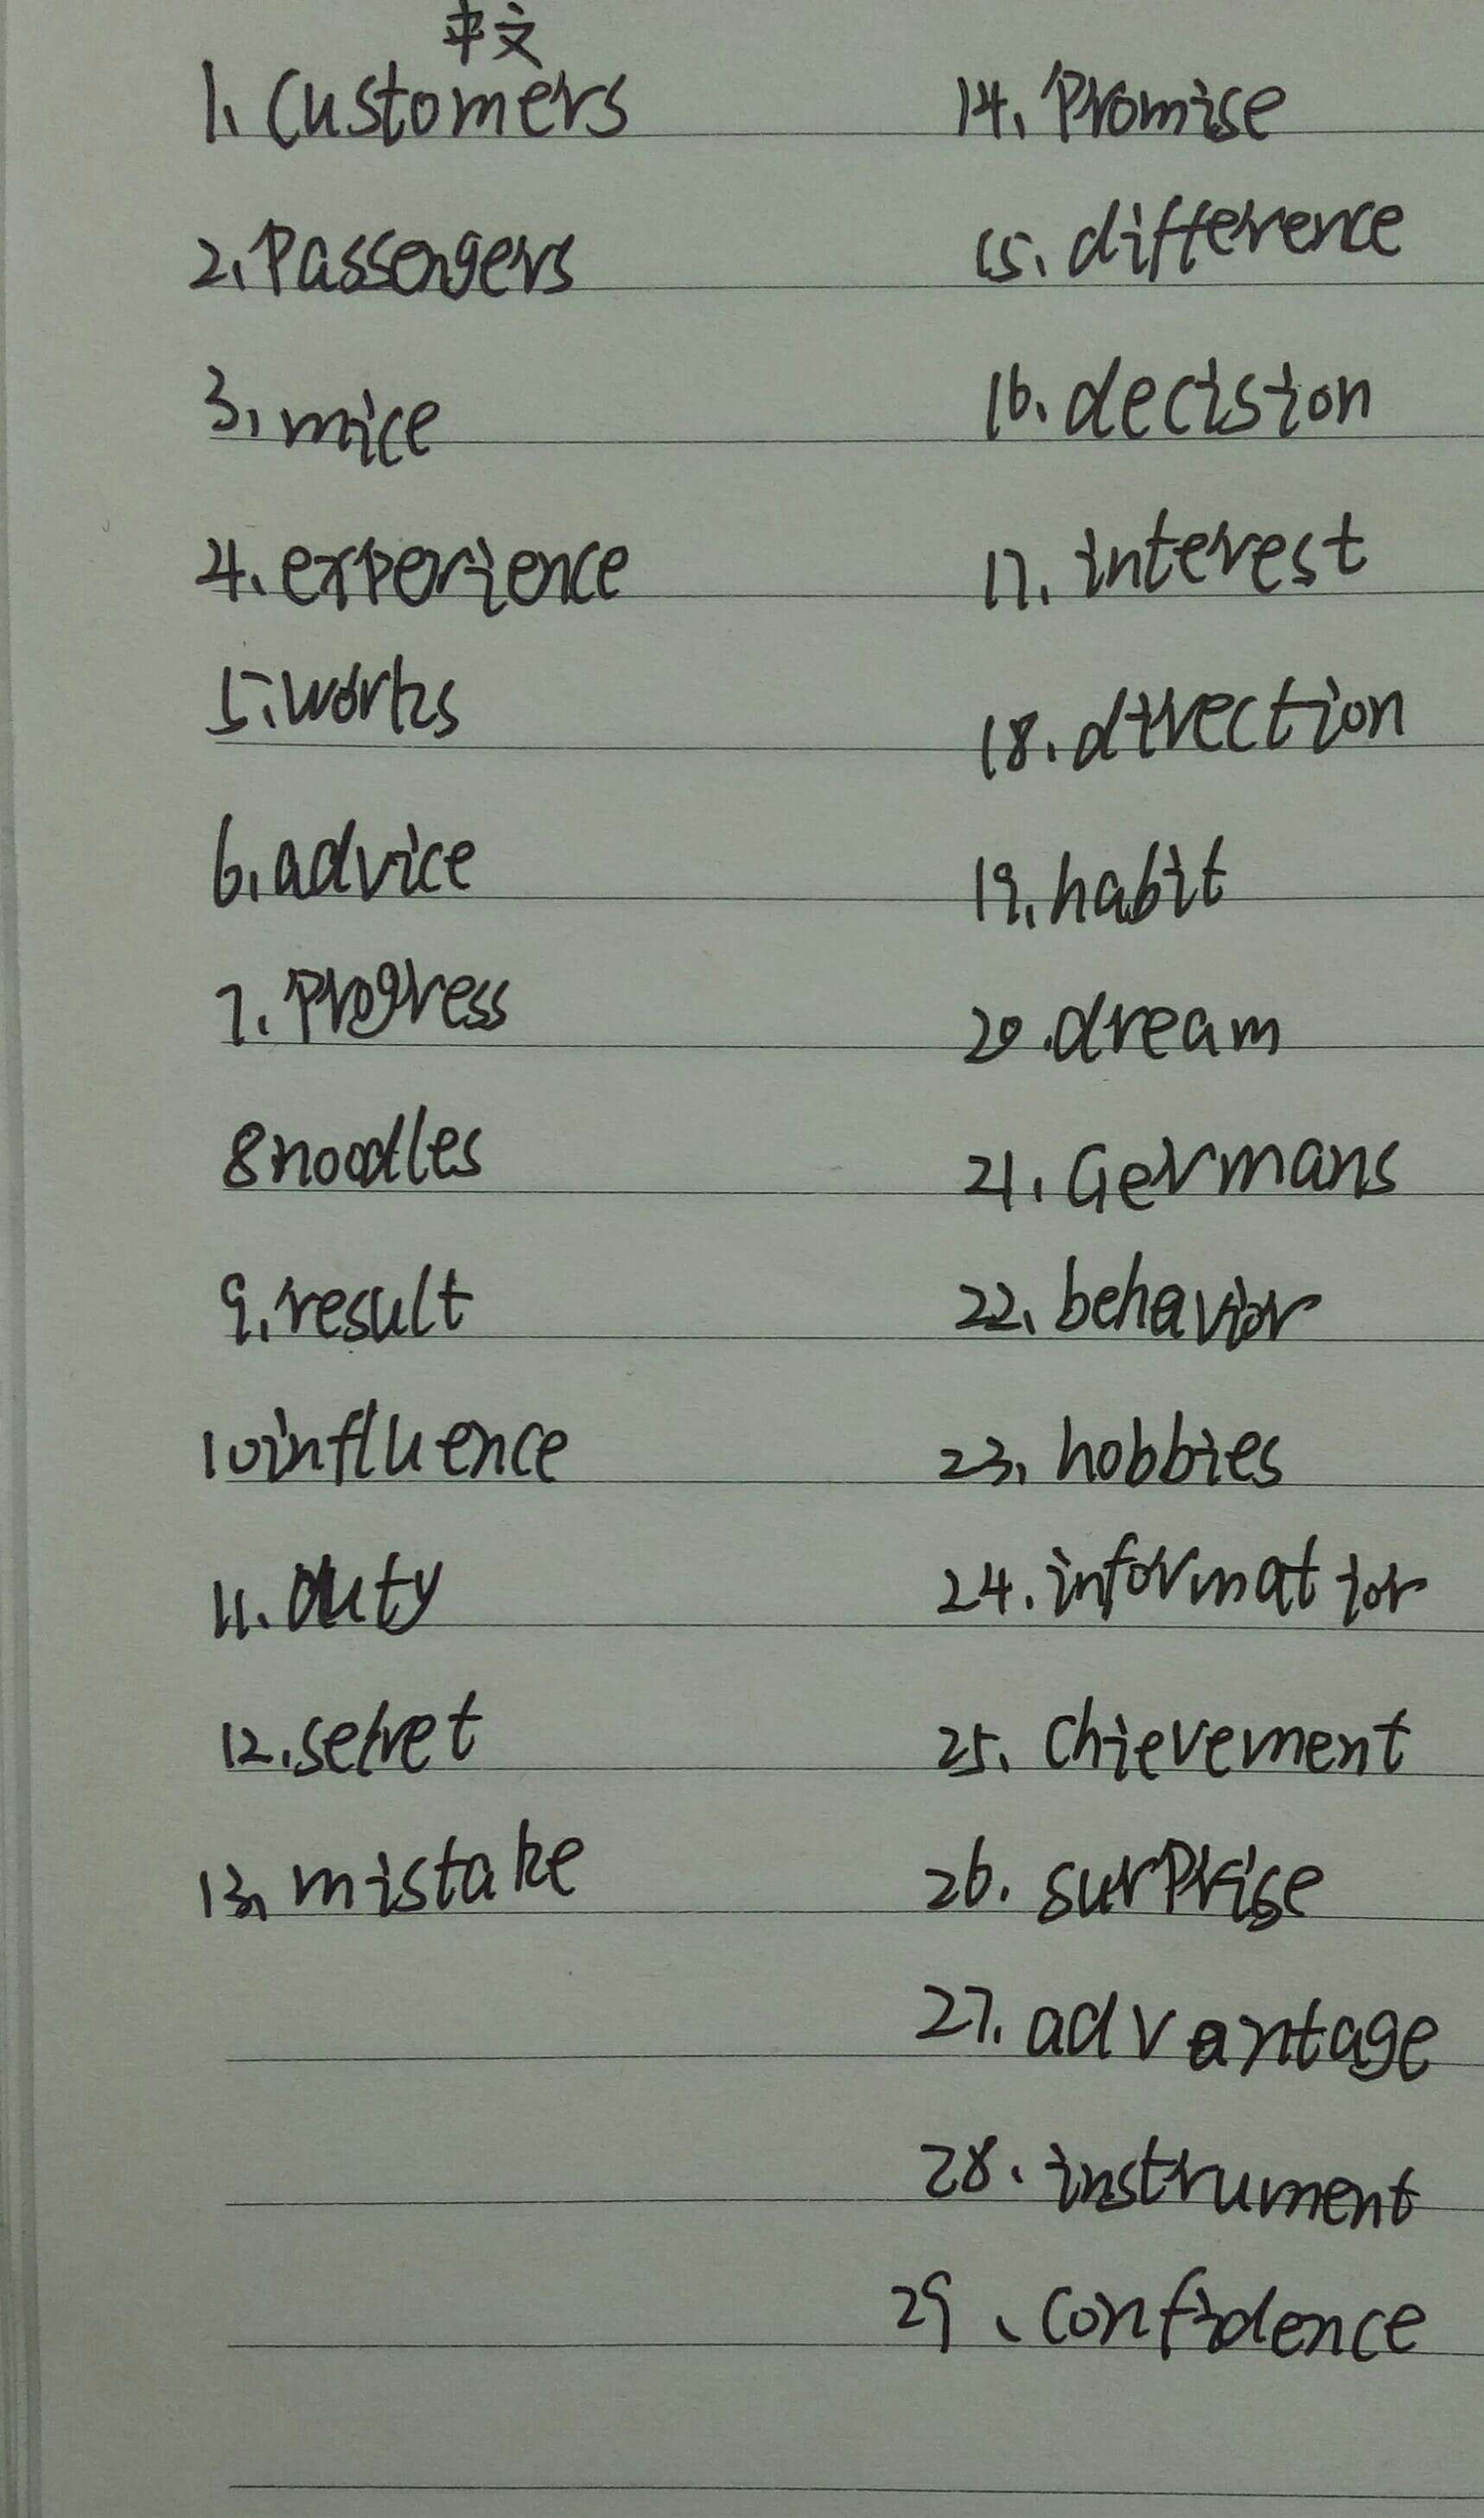 1. Customers
2. Passengers
3. mice
4. experience
5. works
6. advice
7. Progress
8 noodles
9. result
10 influence
11. duty
12. secret
13. mistake
14. Promise
15. difference
16. decision
17. interest
18. direction
19. habit
20. dream
21. Germans
22. behavior
23. hobbies
24. information
25. chievement
26. surprise
27. advantage
28. instrument
29、confidence